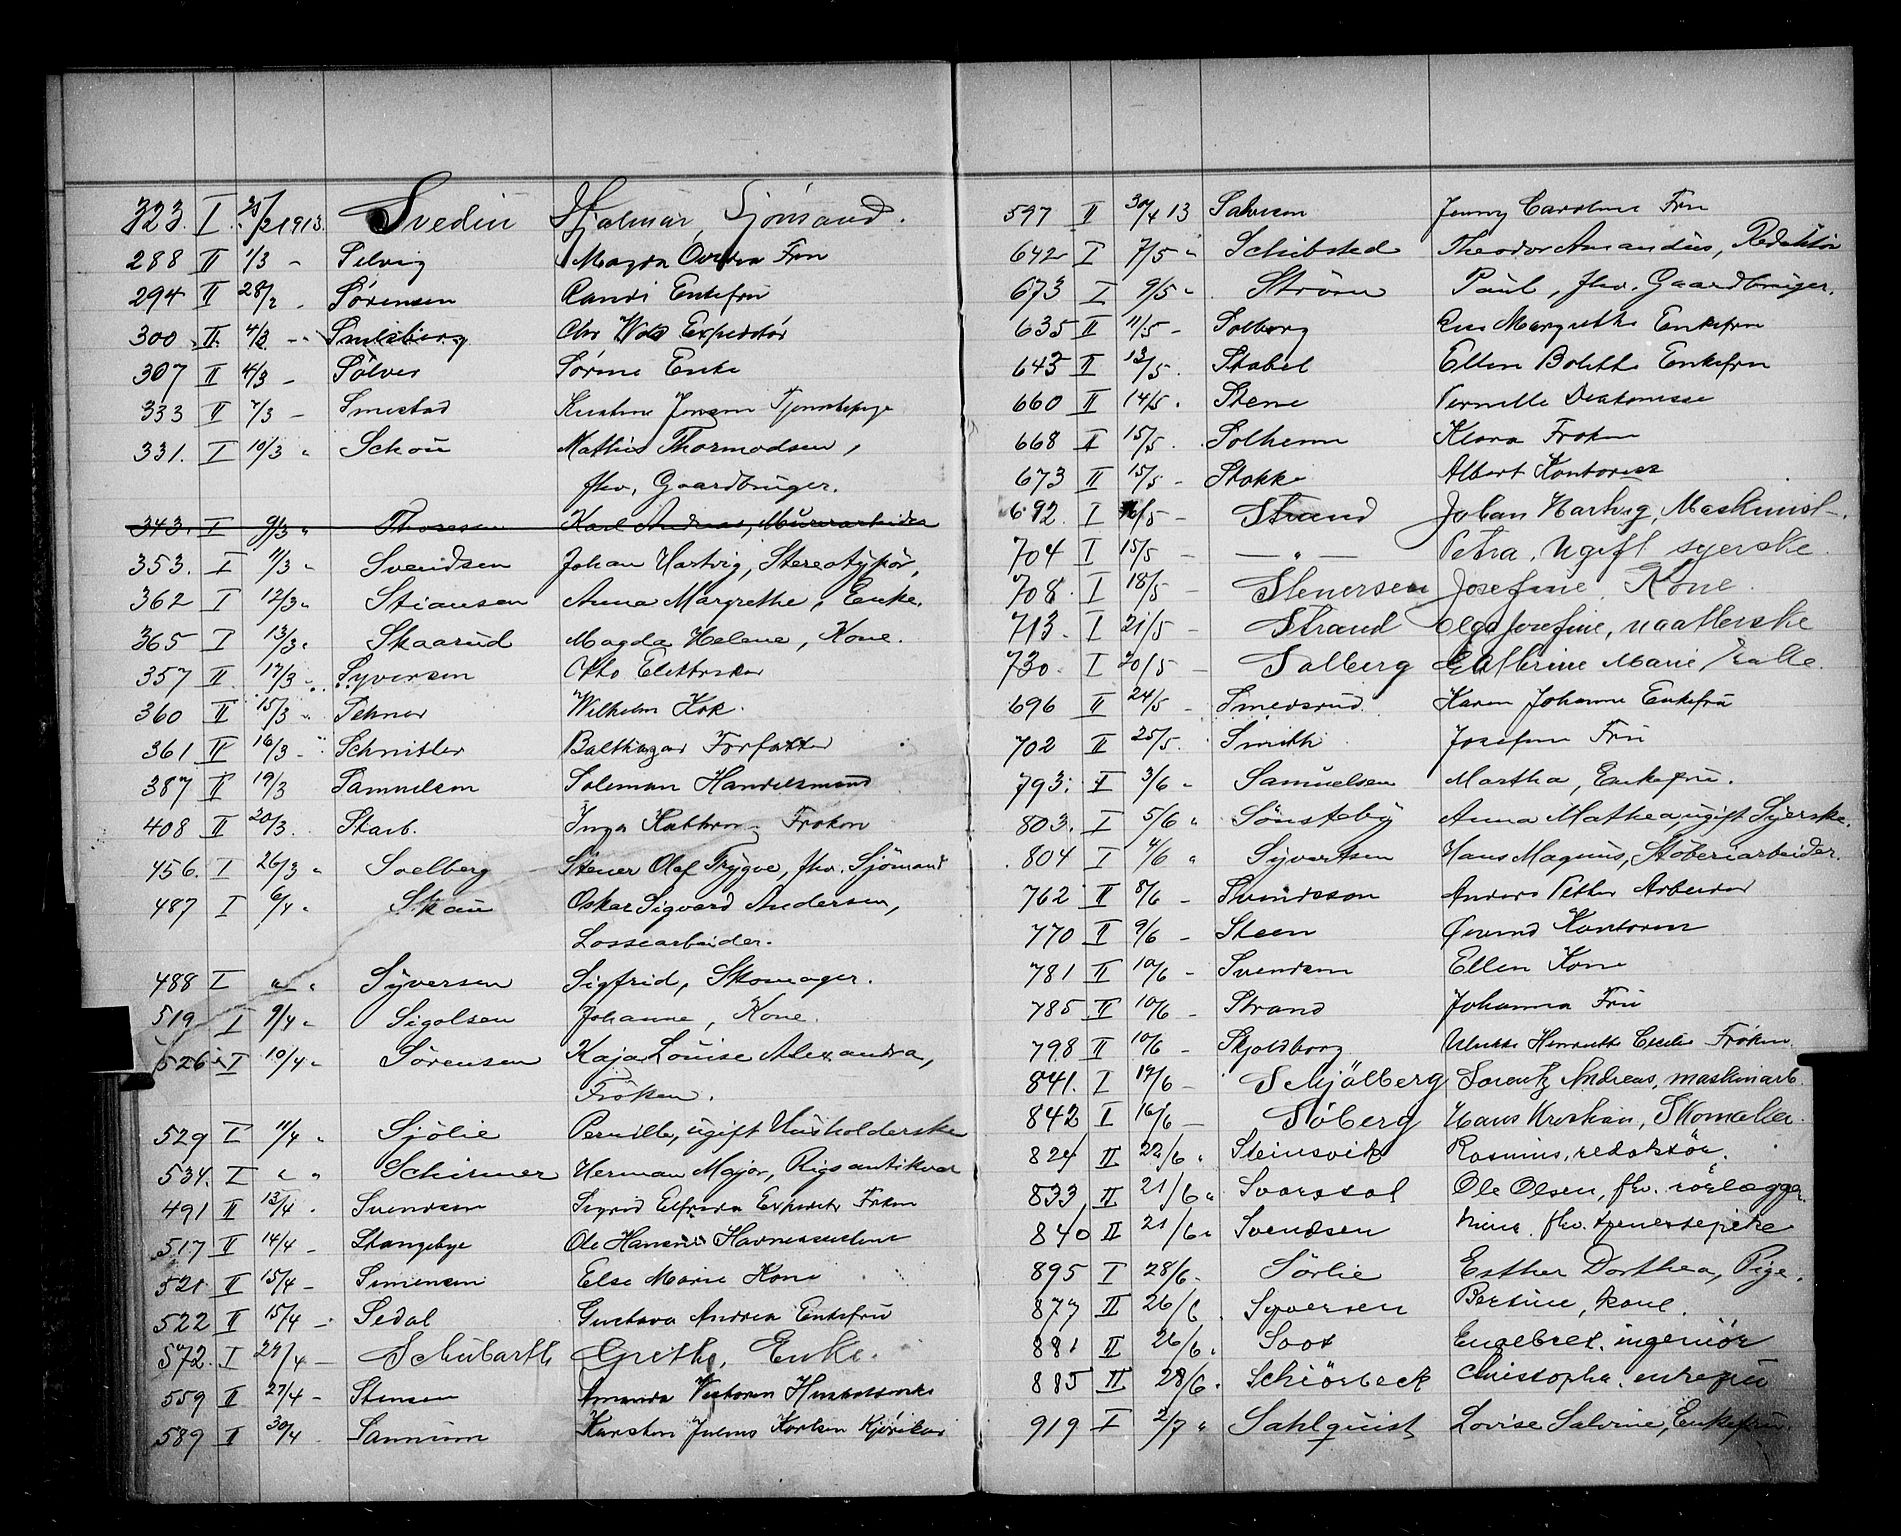 323. I 25/2 1913. Svedin Hjalmar, Sjömand.
288 II 1/3 " Selvig Magda Fru
294 II 28/2 " Sørensen Randi Enkefru
300 II 4/3 " Chr Wold Expeditør
307 II 4/3 " Sølver Sørine Enke
333 II 7/3 " Smestad Kristine Jensen Tjenestepige
331. I 10/3 " Schou Mathias Thormodsen,
fhv. Gaardbruger.
343. I 9/3 " Thoresen Karl Andreas, Murerarbeider
353. I 11/3 " Svendsen Johan Hartvig, Stereotypør,
362 I 12/3 " Stiansen Anna Margrethe, Enke.
365 I 13/3 " Skaarud Magda Helene, Kone.
357 II 17/3 " Syversen Otto Elektriker
360 II 15/3 " Sehner Wilhelm Kok.
361 II 16/3 " Schnitler Balthazar Forfatter
387 II 19/3 Samuelsen Soleman Handelsmand
408 II 20/3. Skarb. Inga Kathrin Frøken
456. I 26/3 " Soelberg Stener Olaf Trygve, fhv. Sjömand
487 I 6/4 " Skau Oskar Sigvard Andersen,
Lossearbeider.
488 I " " Syversen Sigfrid, Skomager.
519 I 9/4 " Sigolsen Johanne, Kone.
526 I 10/4 " Sørensen Kaja Louise Alexandra,
Frøken.
529 I 11/4 " Sjölie Pernille, ugift Husholderske
534. I " " Schirmer Herman Major, Rigsantikvar
491 II 13/4 " Svendsen Sigrid Elfrida Frøken
517 II 14/4 " Stangebye Ole Hansen
521 II 15/4 " Simensen Else Marie Kone
522 II 15/4 " Sedal Gustava Andrea Enkefru
572. I 29/4 " Schubarth Grethe, Enke.
559 II 27/4 " Stensen Amanda Victoria Husholderske
589 II 30/4 Sannum Karsten Julius Karlsen
597 II 30/4 13 Salvesen Jenny Caroline Fru
642 I 7/5 " Schibsted Theodor Amandus, Redaktör
673 I 9/5 " Ström Paul, fhv. Gaardbruger.
635 II 11/5 " Solborg Margrethe Enkefru
643 II 13/5. Stabel Ellen Bolette Enkefru
660 II 14/5 " Stene Pernille Diakonisse
668 II 15/5. Solheim Klara Frøken
673 II 15/5 " Stokke Albert Kontorist
692. I 16/5 " Strand Johan Hartvig, Maskinist.
704 I 15/5 " — " — Petra, Ugift syerske.
708. I 18/5 " Stenersen Josefine, Kone.
713. I 21/5 " Strand Olga Josefine, naatlerske
730. I 20/5 " Solberg Cathrine Marie Enke.
696 II 24/5 " Smedsrud Karen Johanne Enkefru
702 II 25/5. Smith Josefine Fru
793. I 3/6 " Samuelsen Martha, Enkefru.
803. I 5/6 " Sønsteby Anna Mathea, ugift Syerske.
804 I 4/6 " Syvertsen Hans Magnus, Støberiarbeider.
762 II 8/6 " Svendsson Anders Petter Arbeider
770 II 9/6 " Steen Øivind Kontorist
781 II 10/6 " Svendsen Ellen Kone
785 II 10/6 " Strand Johanna Fru
798 II 10/6 " Skjoldborg Ulrikke Henriette Cecilie Frøken.
841. I 17/6 " Schjölberg Lorentz Andreas, maskinarb.
842 I 16/6 " Söberg Hans Kristian, Skomaker.
824 II 22/6 " Steinsvik Rasmus, redaktör.
833 II 21/6 " Svarstal Ole Olsen, fhv. rörlægger.
840 II 21/6 " Svendsen Nina fhv. tjenestepike
895 I 28/6 " Sörlie Esther Dorthea, Pige.
877 II 26/6 Syversen Bertine, kone.
881 II 26/6 " Soot Engebret, ingeniör
885 II 28/6 " Schiörbeck Christopha, enkefru
919 I 2/7 " Sahlquist Lovise Salvine, Enkefru.